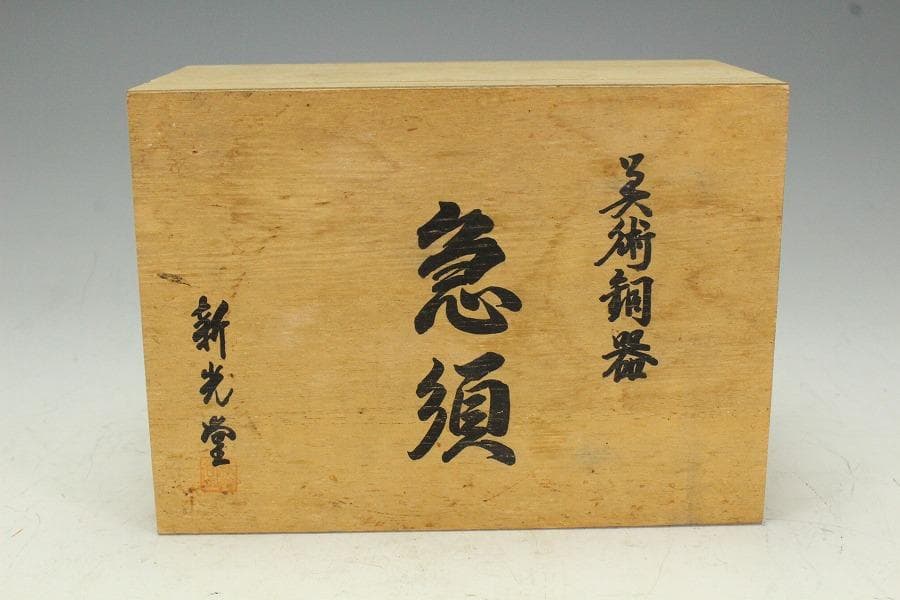 美術銅器
急須
新光堂